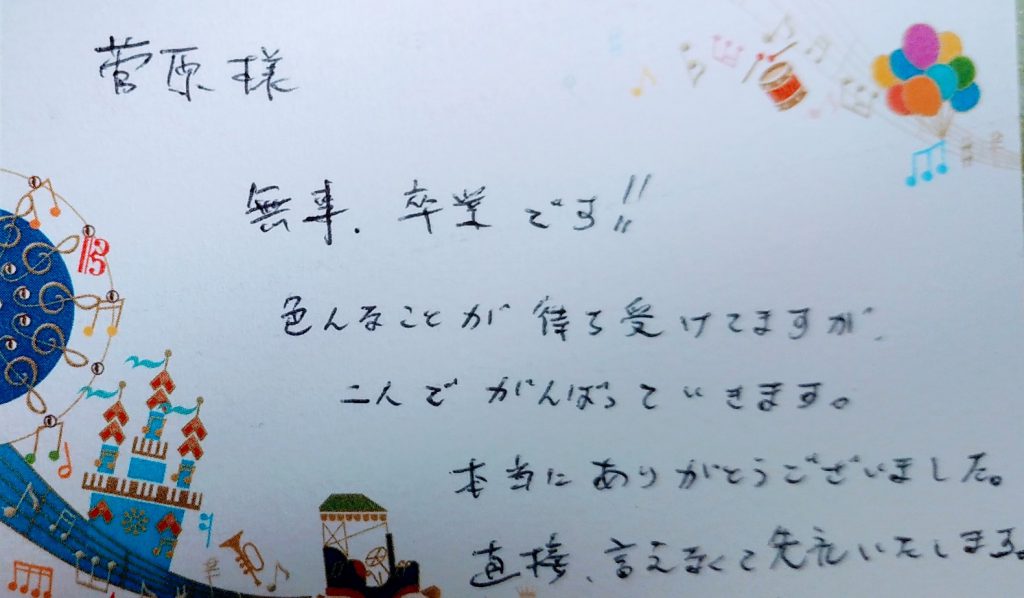 菅原様
無事、卒業です!!
色んなことが待ち受けてますが、
二人でがんばっていきます。
本当にありがとうございました。
直接、言えなくて失礼いたします。